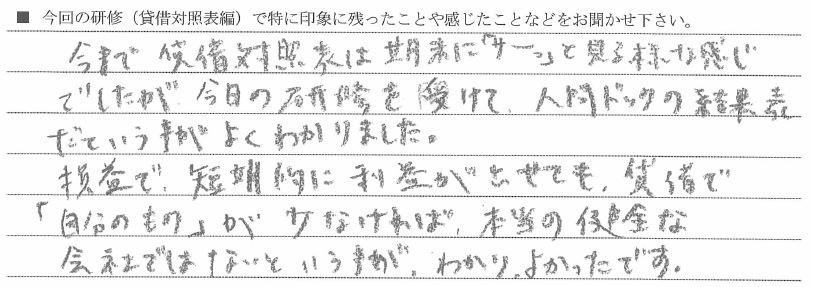 ■ 今回の研修（貸借対照表編）で特に印象に残ったことや感じたことなどをお聞かせ下さい。
今まで貸借対照表は期末に「サーっ」と見る様な感じ
でしたが、今日の研修を受けて、人間ドックの結果表
だという事がよくわかりました。
損益で、短期的に利益が出せても、貸借で
「自分のもの」が少なければ、本当の健全な
会社ではないという事が、わかり、よかったです。